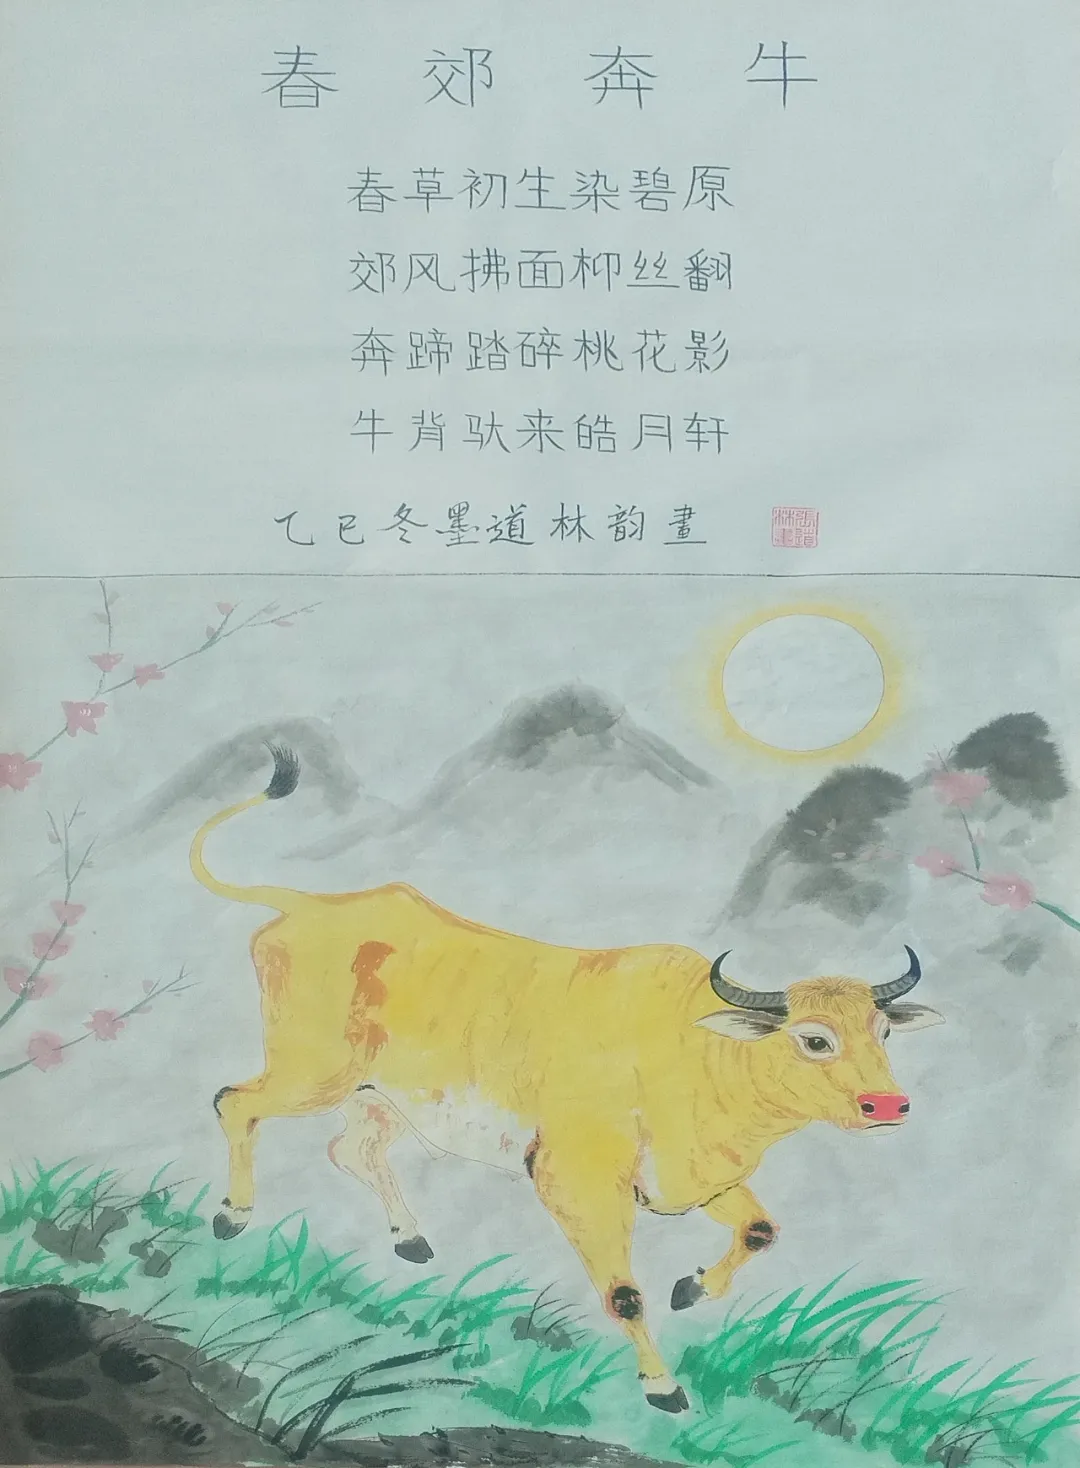 春郊奔牛
春草初生染碧原
郊风拂面柳丝翻
奔蹄踏碎桃花影
牛背驮来皓月轩
乙巳冬墨道林韵畫